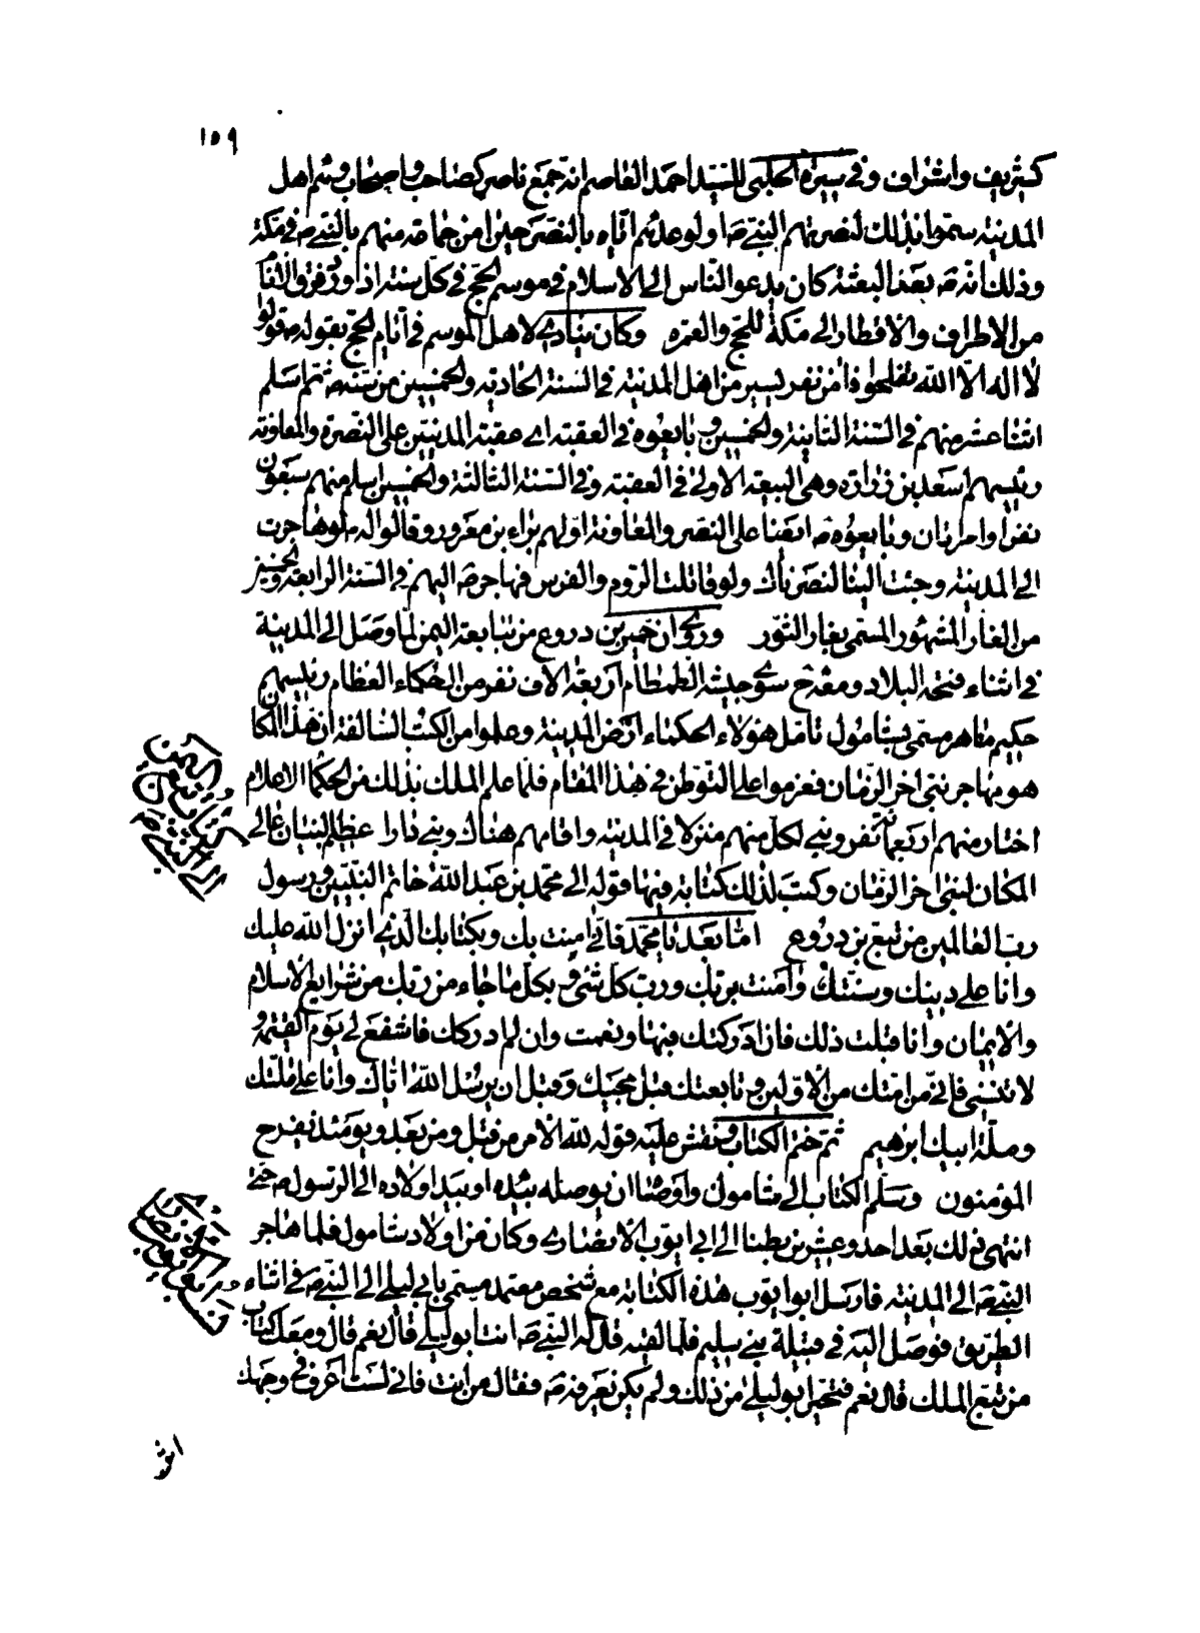 ١٥٩
كشريف واشراف وفي سيرة الحلبي للسيد احمد العاصم انه جمع ناصر كصاحب واصحاب وثم اهل
المدينة سموا بذلك لنصرتهم النبي ص اولوعدهم اياه بالنصر حين امن جماعة منهم بالنبي ص في مكة
وذلك انه ص بعد البعثة كان يدعو الناس الى الاسلام في موسم الحج في كل سنة اذا ورد فرق الناس
من الاطراف والاقطار الى مكة للحج والعمرة وكان ينادي لاهل الموسم في ايام الحج بقوله ص قولوا
لا اله الا الله تفلحوا فامن نفر يسير من اهل المدينة في السنة الحادية والخمسين من سنه ص ثم اسلم
اثنا عشر منهم في السنة الثانية والخمسين وبايعوه في العقبة اي عقبة المدنيين على النصرة والمعاونة
رئيسهم اسعد بن زرارة وهي البيعة الاولى في العقبة وفي السنة الثالثة والخمسين اسلم منهم سبعون
نفرا وامرأتان وبايعوه ص ايضا على النصر والمعاونة اولهم براء بن معرور وقالوا له ص لو هاجرت
الى المدينة وجئت الينا لنصرناك ولو قاتلت الروم والفرس فهاجر ص اليهم في السنة الرابعة والخمسين
من الغار المشهور المسمى بغار الثور وروي ان خمير بن دروع من تبابعة اليمن لما وصل الى المدينة
في اثناء فتحه البلاد ومعه سوى جيشه الطمطام اربعة الاف نفر من الحكماء العظام رئيسهم
حكيم ماهر مسمى بشامول تأمل هؤلاء الحكماء ارض المدينة وعلموا من الكتب السالفة ان هذا المكان
هو مهاجر نبي اخر الزمان فعزموا على التوطن في هذا المقام فلما علم الملك بذلك من الحكما الاعلام
اختار منهم اربعمائة نفر وبنى لكل منهم منزلا في المدينة واقامهم هناك وبنى دارا عظيم البنيان عالي
المكان لنبي اخر الزمان وكتب لذلك كتابة فيها قوله الى محمد بن عبد الله خاتم النبيين ورسول
رب العالمين من تبع بن دروع اما بعد يا محمد فاني امنت بك وبكتابك الذي انزل الله عليك
وانا على دينك وسنتك وامنت بربك ورب كل شئ وبكل ما جاء من ربك من شرايع الاسلام
والايمان وانا قبلت ذلك فان ادركتك فبها ونعمت وان لم ادركك فاشفع لي يوم القيمة و
لا تنسني فاني من امتك من الاولين وتابعتك قبل مجيئك وقبل ان يرسل الله اياك وانا على ملتك
وملة ابيك ابرهيم ثم ختم الكتاب ونقش عليه قوله لله الامر من قبل ومن بعد ويومئذ يفرح
المؤمنون وسلم الكتاب الى شامول واوصا ان يوصله بيده او بيد اولاده الى الرسول ص حتى
انتهى ذلك بعد احد وعشرين بطنا الى ابي ايوب الانصاري وكان من اولاد شامول فلما هاجر
النبي ص الى المدينة فارسل ابو ايوب هذه الكتابة مع شخص معتمد مسمى بابي ليلى الى النبي ص في اثناء
الطريق فوصل اليه في قبيلة بني سليم فلما لقيه قال له النبي ص انت ابو ليلى قال نعم قال ومعك كتاب
من تبع الملك قال نعم فتحير ابو ليلى من ذلك ولم يكن يعرفه ص فقال من انت فاني لست اعرف في وجهك
اثر